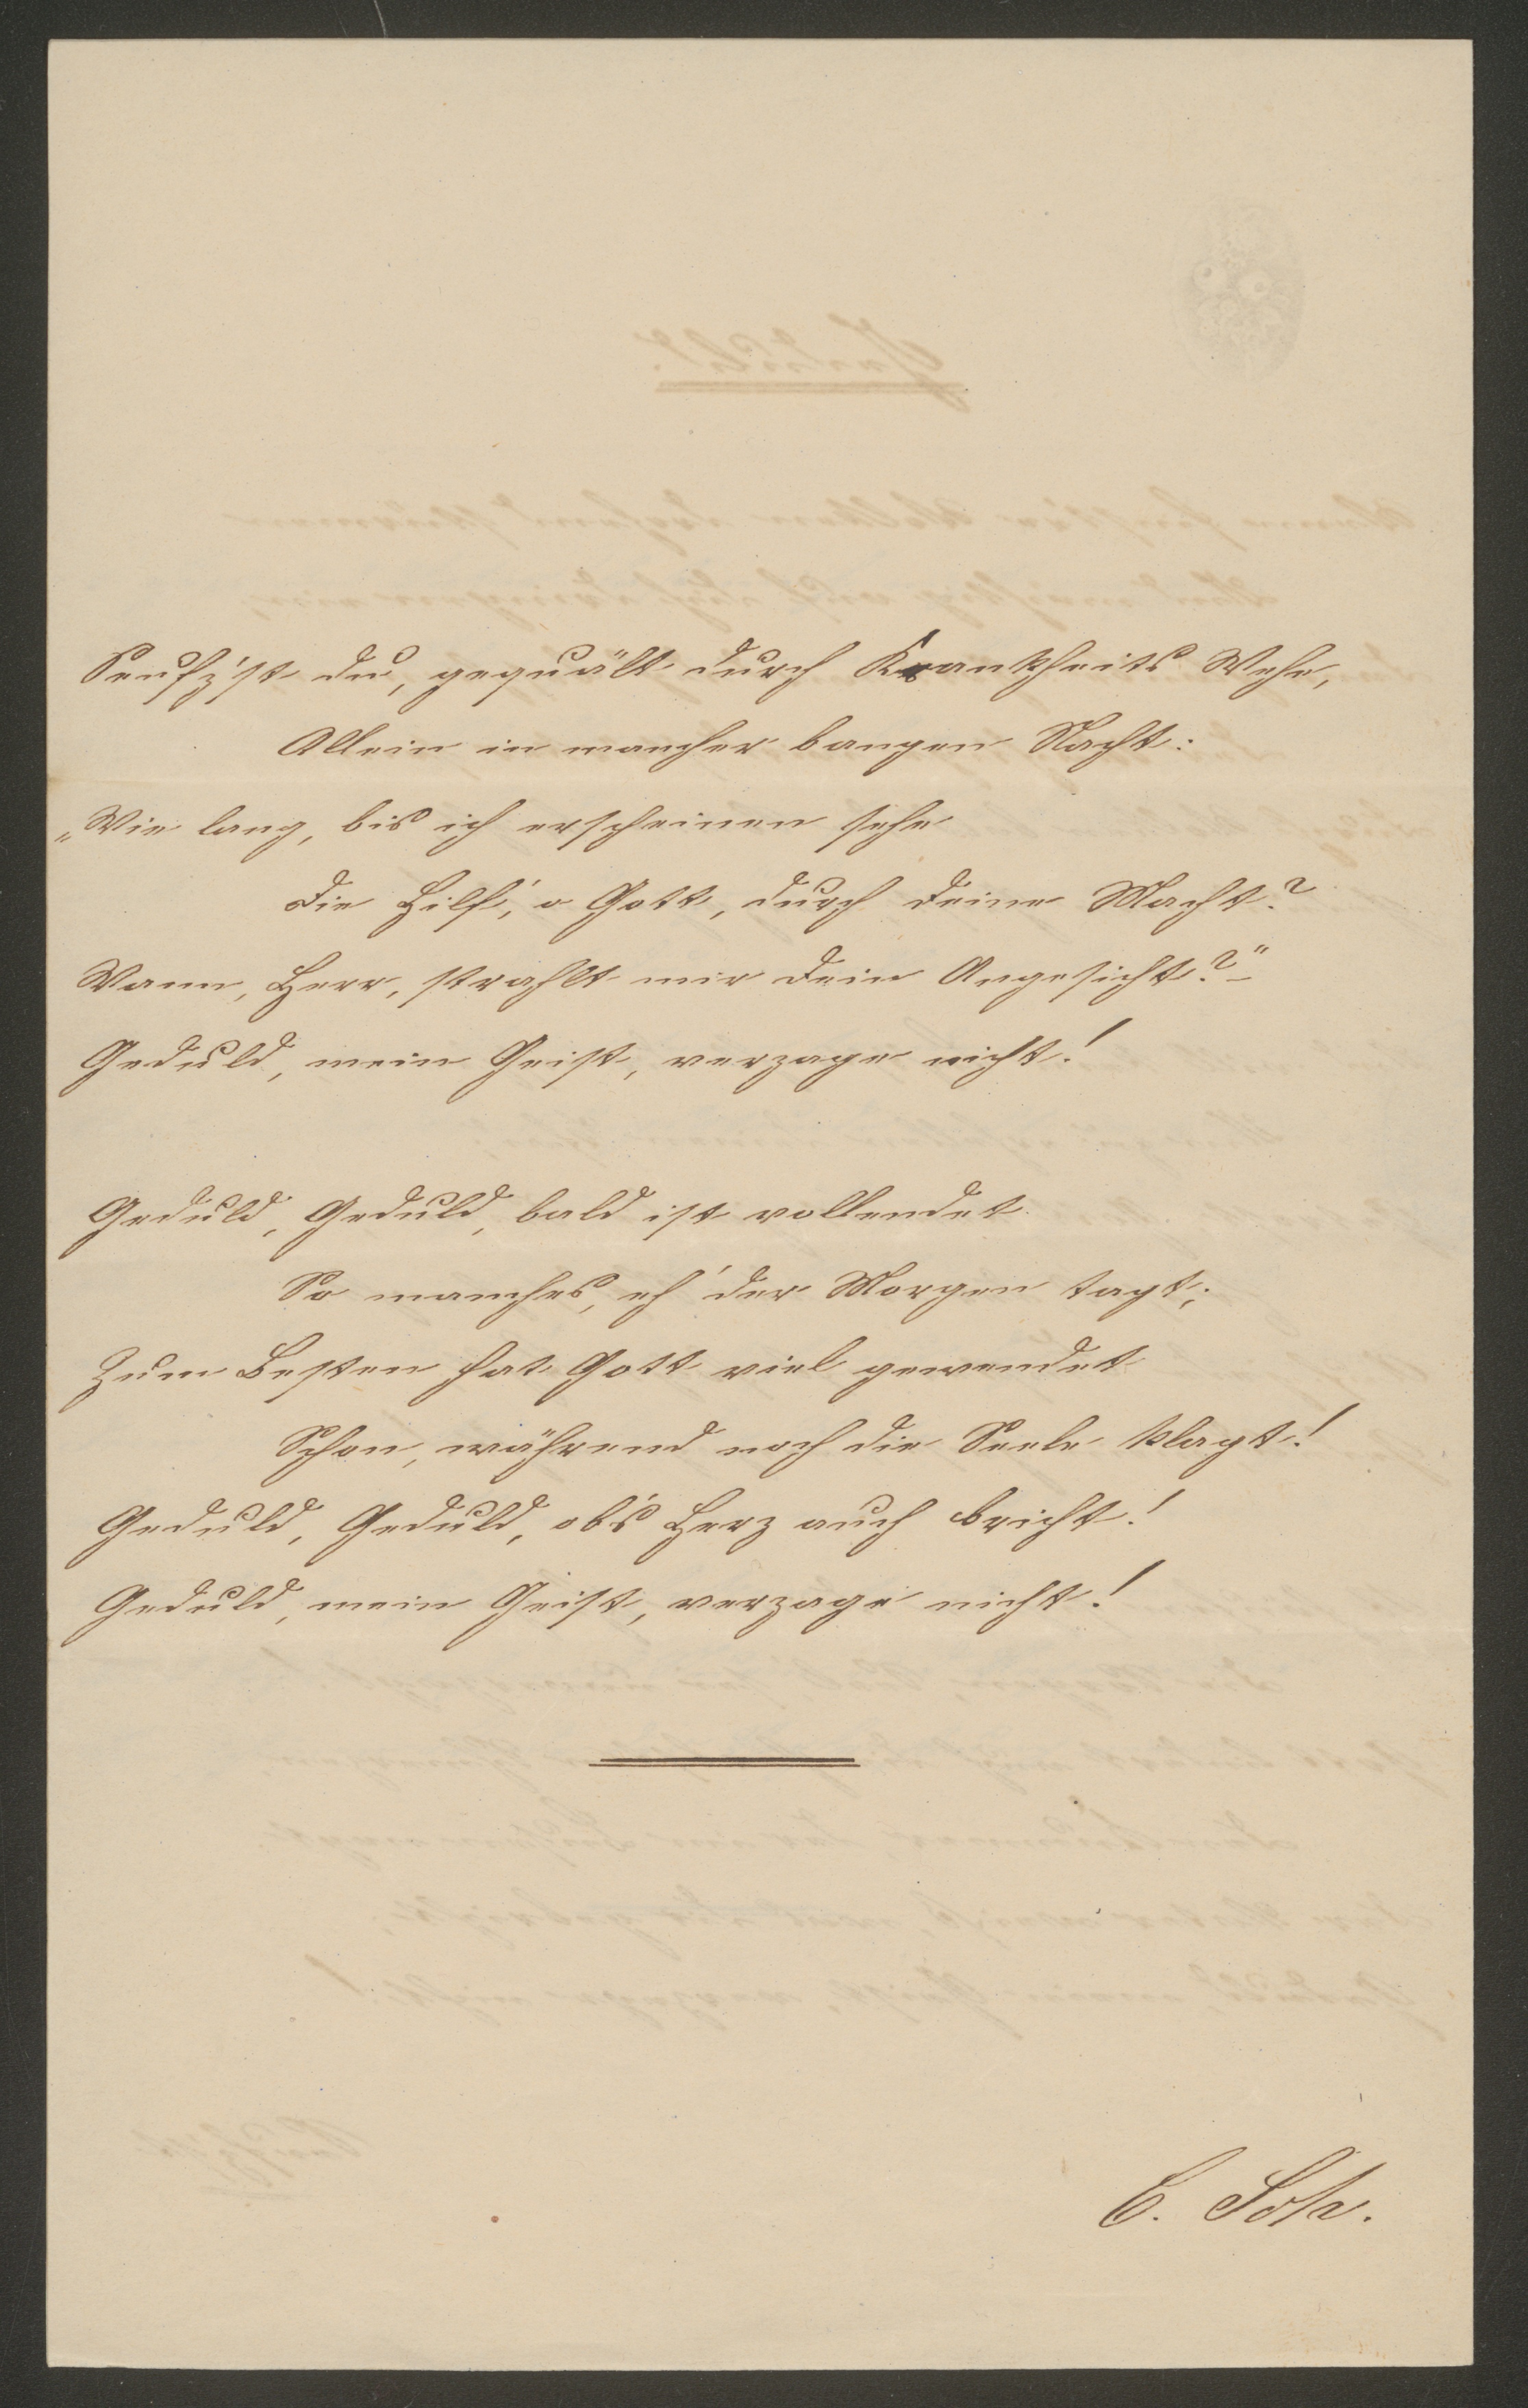 Seufz'st du, gequält durch Krankheits Wehe,
Allein in mancher bangen Nacht:
„Wie lang, bis ich erscheinen sehe
Die Hilf', o Gott, durch Deine Macht?
Wann, Herr, strahlt mir Dein Angesicht?" –
Geduld, mein Geist, verzage nicht!
Geduld, Geduld, bald ist vollendet
So manches, eh' der Morgen tagt;
Zum Besten hat Gott viel gewendet
Schon, während noch die Seele klagt!
Geduld, Geduld, ob's Herz auch bricht!
Geduld, mein Geist, verzage nicht!
C.